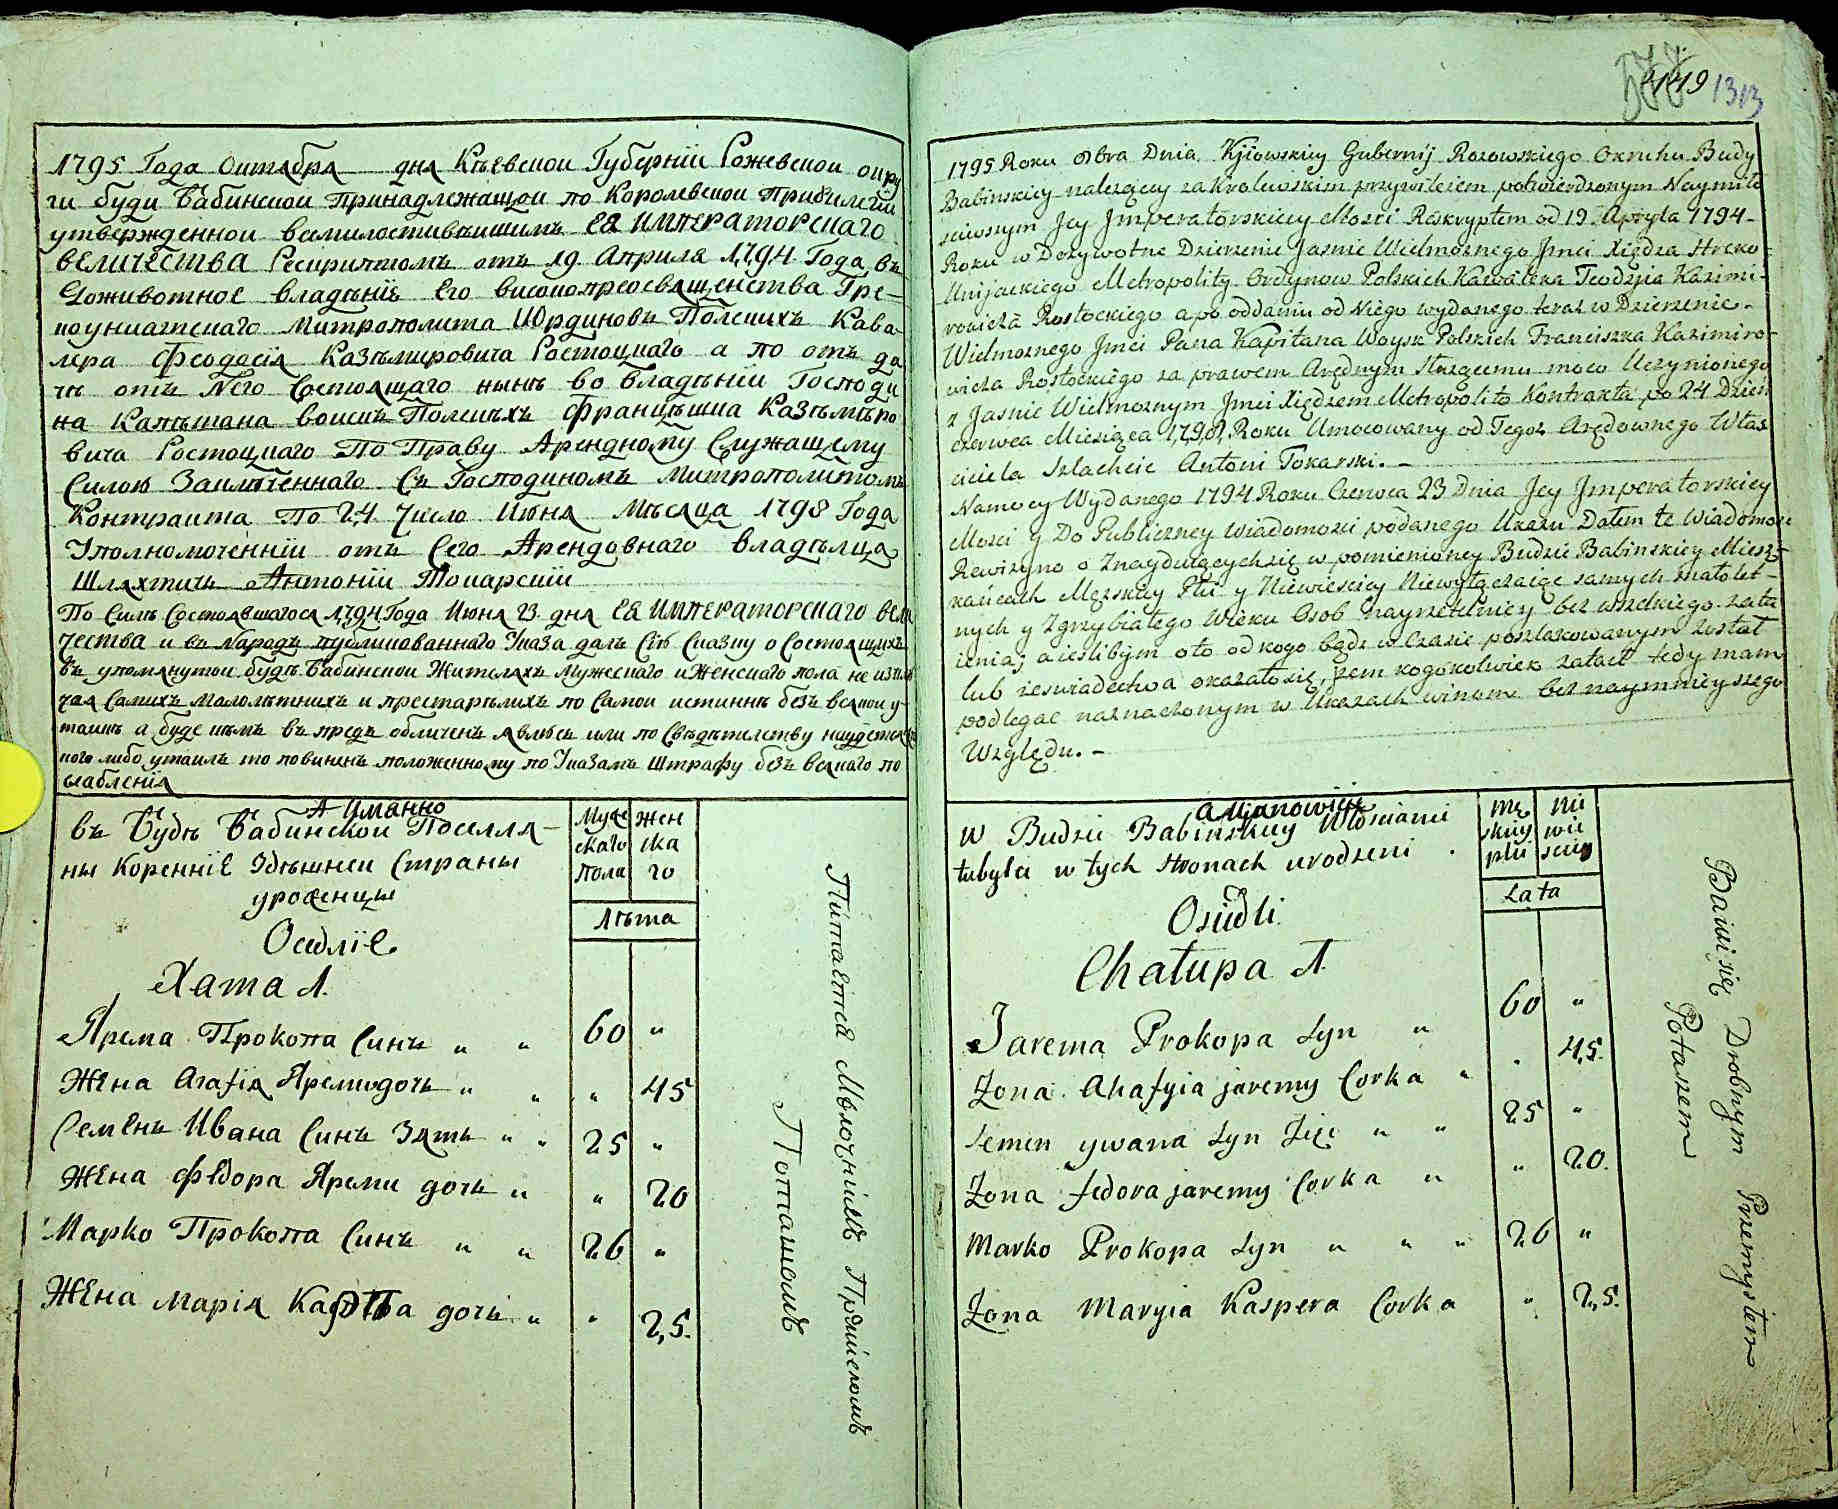 1795 Года Октабра дня Кѣевской Губерніи Рожевской окру
ги буди Бабинской принадлежащой по Королевской привилегіи
утвержденной всемилостивѣишимъ ЕЯ ИМПЕРАТОРСКАГО
ВЕЛИЧЕСТВА Рескриптомъ отъ 19. Априля 1794. Года въ
Доживотное владѣніе Его високопреосвященства Гре-
коуниатскаго Митрополита Иординовъ Полскихъ Кава
лера Феодосія Казѣмировича Ростоцкаго а по отъ да
чѣ отъ Него Состоящаго нынѣ во Владѣніи Господи
на Капѣтана воискъ Полскѣхъ Францѣшка Казѣмѣро
вича Ростоцкаго По Праву Арендному Служащему
Силою Заключеннаго Съ Господиномъ Митрополитомъ
Контракта По 24. Число Июня Мѣсяца 1798 Года
Уполномоченніи отъ Сего Арендовнаго владѣлца
Шляхтичъ Антоніи Токарскіи
По Силѣ Состоявшагося 1794 Года Июня 23. дня ЕЯ ИМПЕРАТОРСКАГО ВЕЛИ
чества и въ Народъ публикованнаго Указа далъ Сію Сказку о Состоящихъ
въ упомянутой будѣ Бабинской Жителяхъ Мужескаго и Женскаго пола не изклю
чая Самихъ Малолѣтнихъ и престарѣлихъ по Самой истиннѣ безъ всякой у-
таики а буде кѣмъ въ предь обличенъ явлюсь или по Свѣдѣтелству найдется
кого либо утаилъ то повиненъ положенному по Указамъ Штрафу безъ всякаго по
слабленія
А Иманно
въ Будѣ Бабинской Поселля-
ны Коренніе Здѣшней Страны
уроженцы
Муже
скаго
пола
Жен
ска
го
Лѣта
Оседліе
Хата 1.
Ярема Прокопа Синъ " " 60 "
Жена Агафія Яремидочь " " " 45
Семенъ Ивана Синъ Зять " " 25 "
Жена Федора Яреми дочь " " 20
Марко Прокопа Синъ " " 26 "
Жена Марія Карпа дочь " " 25.
Питается Мелочнимъ Промисломъ
Поташомъ
1313
1795 Roku 8bra Dnia Kjiowskiey Gubernij Rozowskiego Okruhu Budy
Babinskiey nalezącey za Krolewskim przywileiem potwierdzonym Naymiło
sciwszym Jey Jmperatorskiey Mosci Reskryptem od 19. Apryla 1794-
Roku w Dozywotne Dzierzenie Jasnie Wielmoznego Jmci Xiędza Hreko-
Unijackiego Metropolity Ordynow Polskich Kawalera Teodozia Kazimi-
rowicza Rostockiego a po oddaniu od Niego wydanego teraz w Dzierzenie-
Wielmoznego Jmci Pana Kapitana Woysk Polskich Franciszka Kazimiro-
wicza Rostockiego za prawem Arędnym Służącemu moco Uczynionego
z Jasnie Wielmoznym Jmci Xiędzem Metropolito Kontrakta po 24 Dzień
Czerwca Miesiąca 1798 Roku Umocowany od Tegoz Arędownego Włas
ciciela Szlachcic Antoni Tokarski. -
Namocy Wydanego 1794 Roku Czerwca 23 Dnia Jey Jmperatorskiey
Mosci y Do Publiczney wiadomosci podanego Ukazu Dałem te Wiadomosc
Rewizyno o Znaydujących się w pomienioney Budzie Babinskiey Miesz-
kańcach Męzskiey Płci y Niewiesciey Niewyłączaiąc samych małolet-
nych y Zgrzybiałego Wieku Osob nayrzetelniey bez wszelkiego zata
ienia; a ieslibym oto od kogo bądz w Czasie poszlakowanym został
lub zeswiadectwa okazało się, zem kogokolwiek zataił tedy mam
podlegac naznaczonym w Ukazach winom bez naymnieyszego
Względu. -
a Mianowicie
w Budzie Babinskiey Włoscianie
tubylci w tych stronach urodzeni.
mę
skiey
płci
nie
wie
sciey
Lata
Osiedli
Chałupa 1.
Jarema Prokopa Syn " 60 "
Zona Ahafyia jaremy Corka " " 45.
Semen ywana Syn Zięc " " 25 "
Zona fedora jaremy Corka " " 20.
Marko Prokopa Syn " " " 26 "
Zona Maryia Kaspera Corka " 25.
Bawi się Drobnym Przemysłem
Potazem